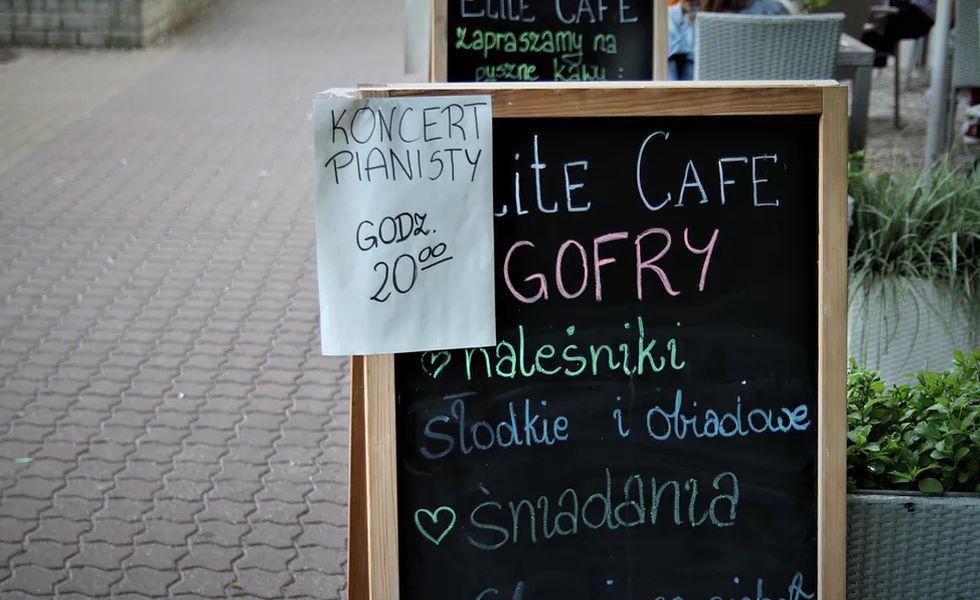 ELITE CAFE
zapraszamy na
pyszne kawy :
KONCERT
PIANISTY
GODZ.
20⁰⁰
LitE CAFE
GOFRY
naleśniki
słodkie i obiadowe
śniadania